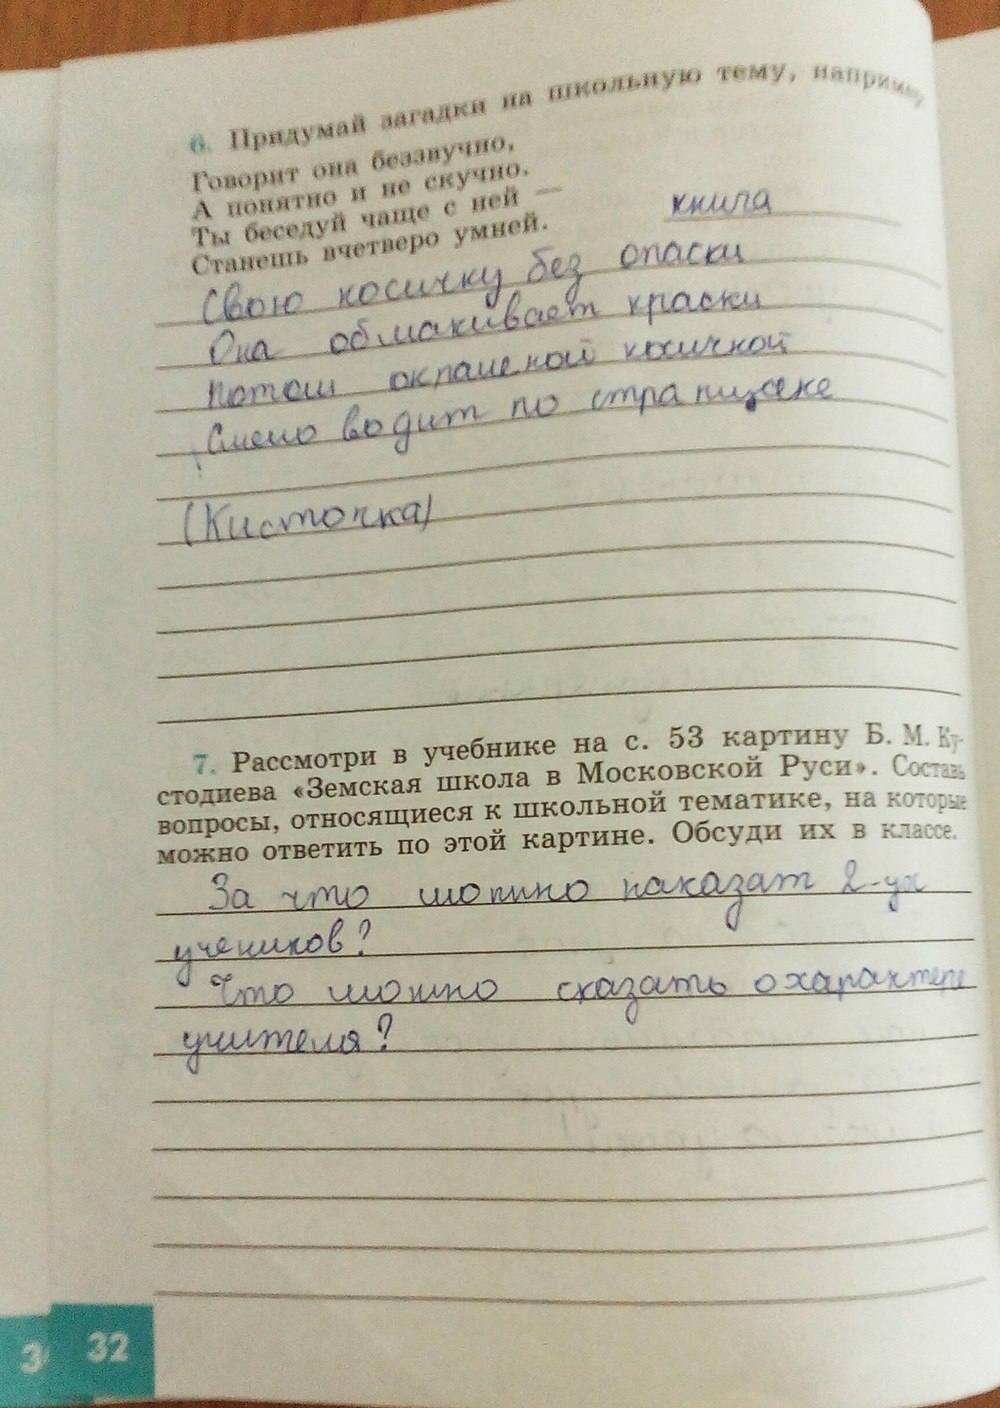 6. Придумай загадки на школьную тему, например
Говорит она беззвучно,
А понятно и не скучно.
Ты беседуй чаще с ней —
Станешь вчетверо умней.
книга
Свою косичку без опаски
Она обмакивает краски
потом окрашеной косичкой
Смело водит по
(Кисточка)
7. Рассмотри в учебнике на с. 53 картину Б. М. Ку-
стодиева «Земская школа в Московской Руси». Составь
вопросы, относящиеся к школьной тематике, на которые
можно ответить по этой картине. Обсуди их в классе.
За что можно наказат 2-ух
учеников?
Что можно сказать о характере
учителя?
32